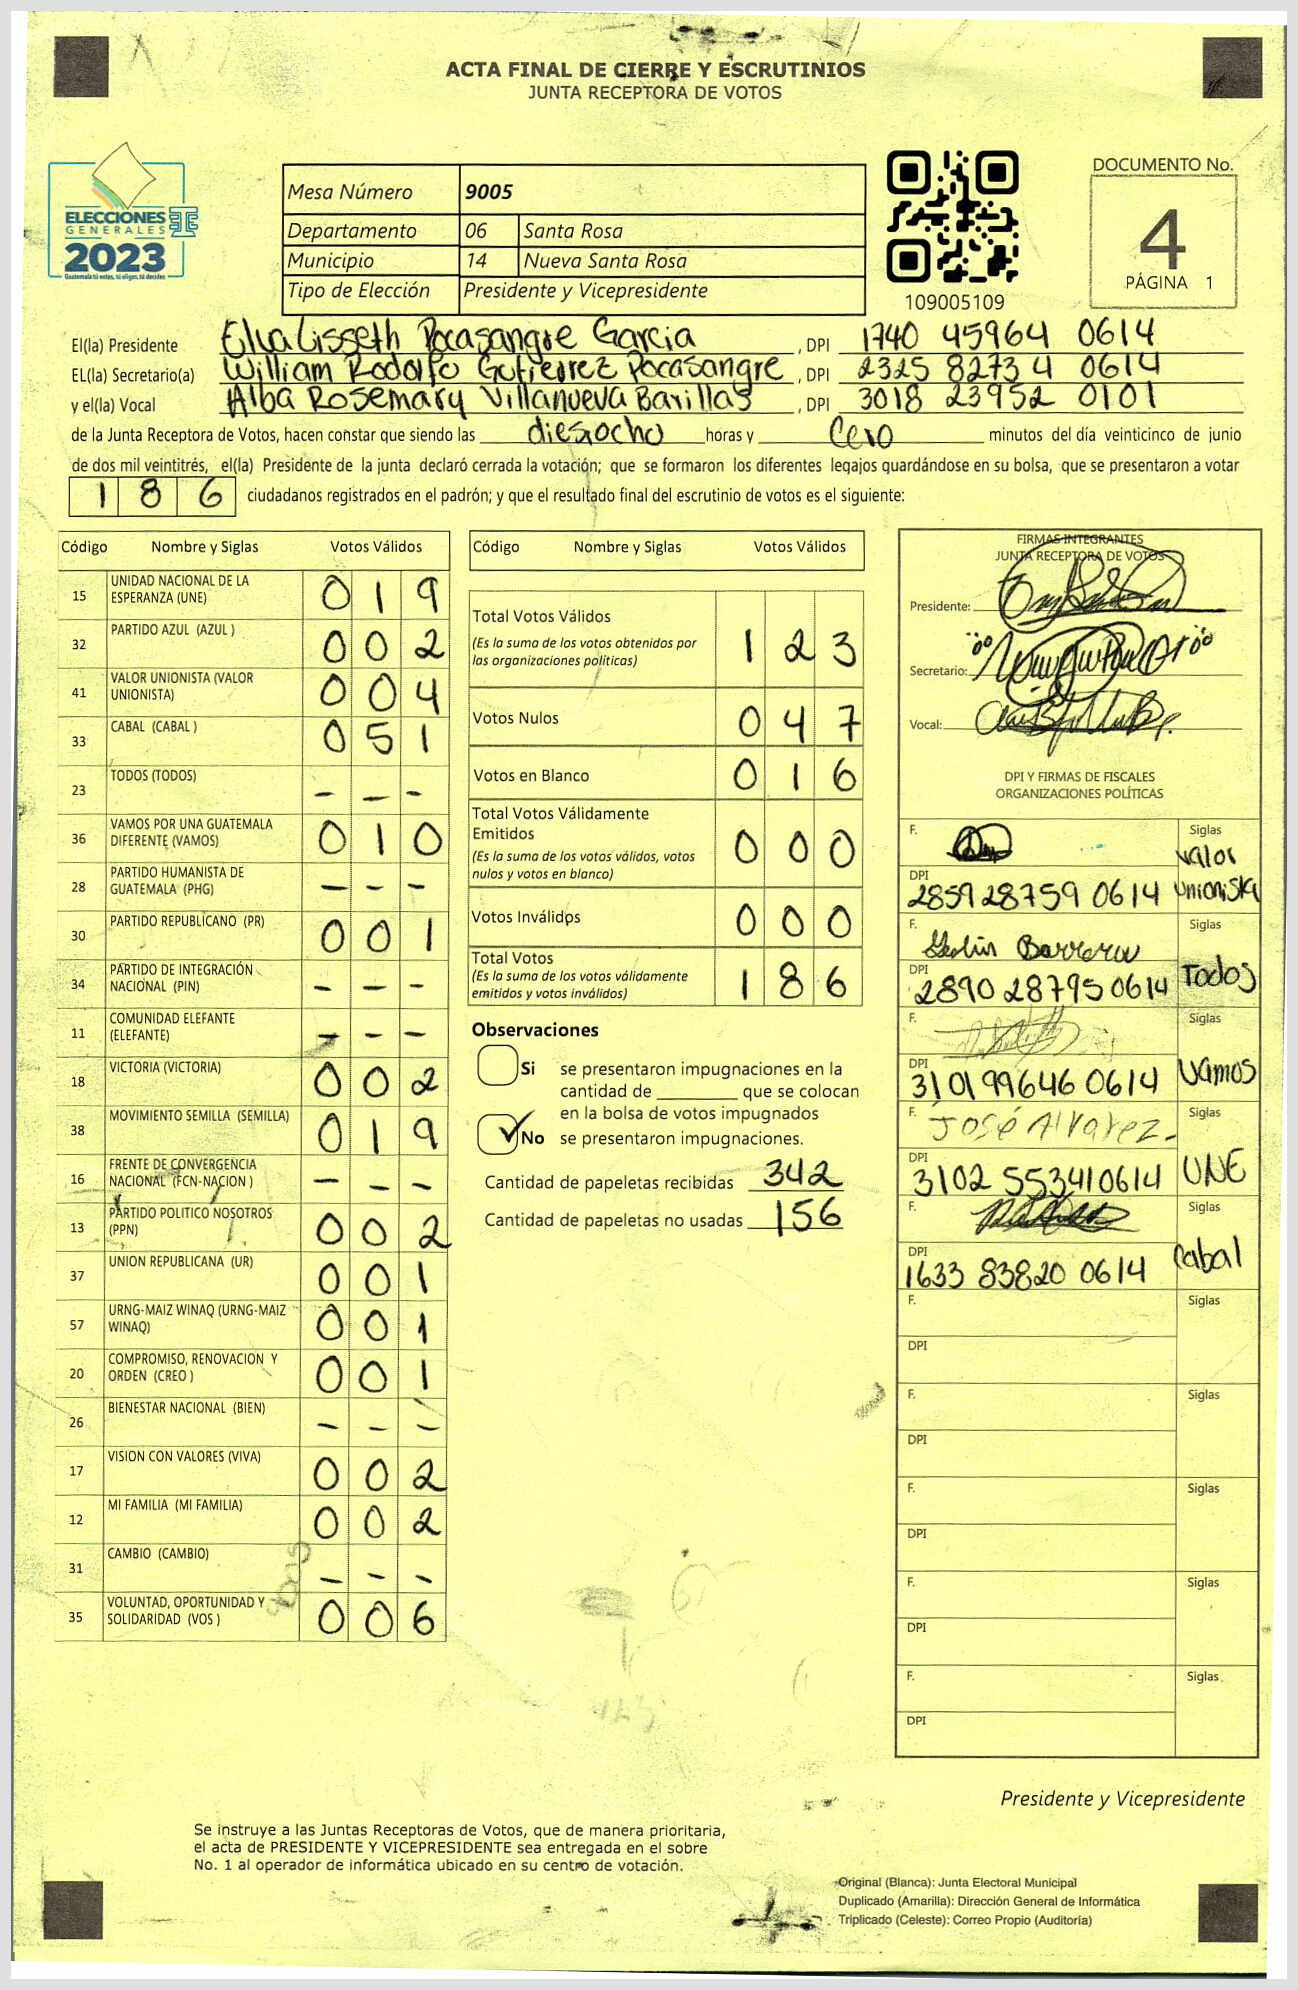 ACTA FINAL DE CIERRE Y ESCRUTINIOS
JUNTA RECEPTORA DE VOTOS
ELECCIONES
GENERALES
2023
Guatemala tú votas, tú eliges, tú decides
Mesa Número 9005
Departamento 06 Santa Rosa
Municipio 14 Nueva Santa Rosa
Tipo de Elección Presidente y Vicepresidente
109005109
DOCUMENTO No.
4
PÁGINA 1
El(la) Presidente Elva Lisseth Pocasangre Garcia , DPI 1740 45964 0614
EL(la) Secretario(a) William Rodolfo Gutierrez Pocasangre , DPI 2325 82734 0614
y el(la) Vocal Alba Rosemary Villanueva Barillas , DPI 3018 23952 0101
de la Junta Receptora de Votos, hacen constar que siendo las diesiocho horas y Cero minutos del día veinticinco de junio
de dos mil veintitrés, el(la) Presidente de la junta declaró cerrada la votación; que se formaron los diferentes legajos guardándose en su bolsa, que se presentaron a votar
1 8 6 ciudadanos registrados en el padrón; y que el resultado final del escrutinio de votos es el siguiente:
Código Nombre y Siglas Votos Válidos
15 UNIDAD NACIONAL DE LA ESPERANZA (UNE) 0 1 9
32 PARTIDO AZUL (AZUL ) 0 0 2
41 VALOR UNIONISTA (VALOR UNIONISTA) 0 0 4
33 CABAL (CABAL ) 0 5 1
23 TODOS (TODOS) - - -
36 VAMOS POR UNA GUATEMALA DIFERENTE (VAMOS) 0 1 0
28 PARTIDO HUMANISTA DE GUATEMALA (PHG) - - -
30 PARTIDO REPUBLICANO (PR) 0 0 1
34 PARTIDO DE INTEGRACIÓN NACIONAL (PIN) - - -
11 COMUNIDAD ELEFANTE (ELEFANTE) - - -
18 VICTORIA (VICTORIA) 0 0 2
38 MOVIMIENTO SEMILLA (SEMILLA) 0 1 9
16 FRENTE DE CONVERGENCIA NACIONAL (FCN-NACION ) - - -
13 PARTIDO POLITICO NOSOTROS (PPN) 0 0 2
37 UNION REPUBLICANA (UR) 0 0 1
57 URNG-MAIZ WINAQ (URNG-MAIZ WINAQ) 0 0 1
20 COMPROMISO, RENOVACION Y ORDEN (CREO ) 0 0 1
26 BIENESTAR NACIONAL (BIEN) - - -
17 VISION CON VALORES (VIVA) 0 0 2
12 MI FAMILIA (MI FAMILIA) 0 0 2
31 CAMBIO (CAMBIO) - - -
35 VOLUNTAD, OPORTUNIDAD Y SOLIDARIDAD (VOS ) 0 0 6
Código Nombre y Siglas Votos Válidos
Total Votos Válidos 1 2 3
(Es la suma de los votos obtenidos por
las organizaciones políticas)
Votos Nulos 0 4 7
Votos en Blanco 0 1 6
Total Votos Válidamente
Emitidos 0 0 0
(Es la suma de los votos válidos, votos
nulos y votos en blanco)
Votos Inválidos 0 0 0
Total Votos 1 8 6
(Es la suma de los votos válidamente
emitidos y votos inválidos)
Observaciones
Si se presentaron impugnaciones en la
cantidad de ________ que se colocan
en la bolsa de votos impugnados
No se presentaron impugnaciones.
Cantidad de papeletas recibidas 342
Cantidad de papeletas no usadas 156
FIRMAS INTEGRANTES
JUNTA RECEPTORA DE VOTOS
Presidente:
Secretario:
Vocal:
DPI Y FIRMAS DE FISCALES
ORGANIZACIONES POLÍTICAS
F. Siglas
Valor
DPI 2859 28759 0614 Unionista
F. Siglas
DPI 2890 28795 0614 Todos
F. Siglas
DPI 3101 99646 0614 Vamos
F. José Alvarez. Siglas
DPI 3102 55341 0614 UNE
F. Siglas
DPI 1633 83820 0614 Cabal
F. Siglas
DPI
F. Siglas
DPI
F. Siglas
DPI
F. Siglas
DPI
F. Siglas
DPI
Presidente y Vicepresidente
Se instruye a las Juntas Receptoras de Votos, que de manera prioritaria,
el acta de PRESIDENTE Y VICEPRESIDENTE sea entregada en el sobre
No. 1 al operador de informática ubicado en su centro de votación.
Original (Blanca): Junta Electoral Municipal
Duplicado (Amarilla): Dirección General de Informática
Triplicado (Celeste): Correo Propio (Auditoría)